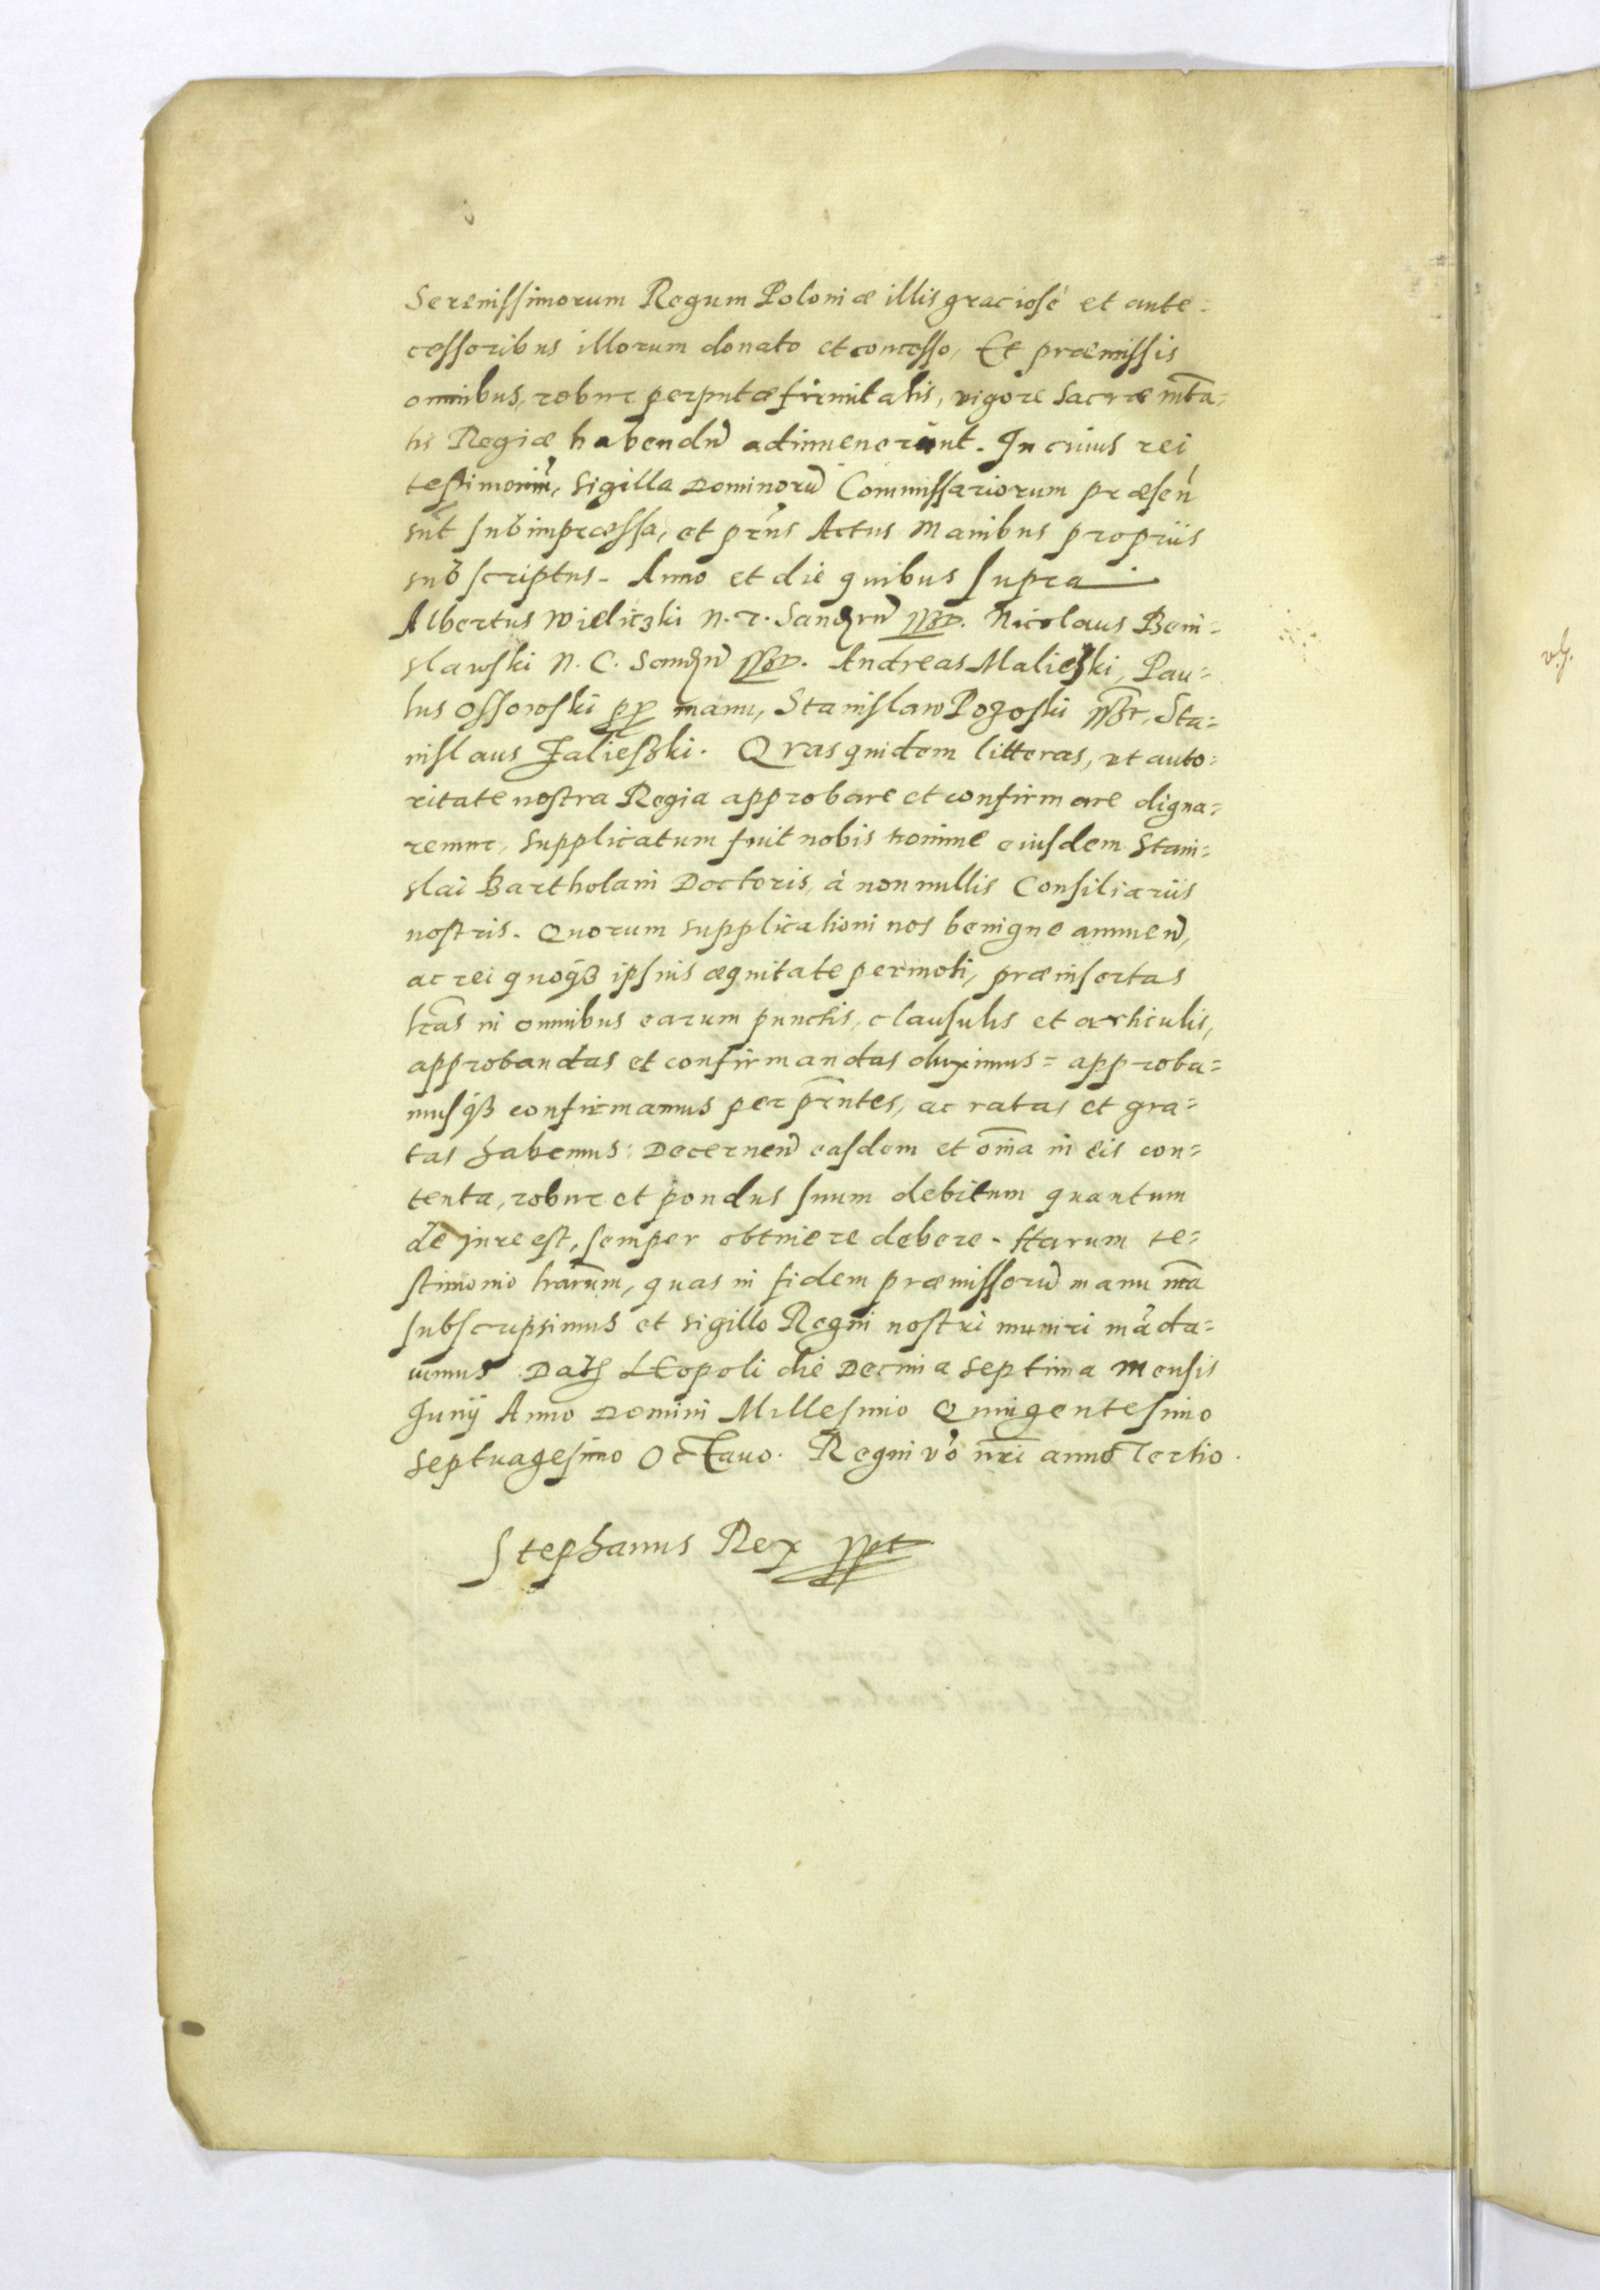 Serenissimorum Regum Poloniæ illis graciosé et ante=
cessoribus illorum donato et concesso, Et præmissis
omnibus, robur perputæ firmitatis, vigore Sacræ mta=
tis Regiæ habendũ adinuenerunt. In cuius rei
testimoniũ, Sigilla Dominorũ Commissariorum præsen
sũt subimpræssa, et prñs Actus Manibus propriis
subscriptus. Anno et die quibus supra
Albertus Wieliczki N. T. Nicolaus Beni=
slawski N. C. Andreas Malieski, Pau=
lus Ossowski pp manu, Stanislaw Pogoski Sta=
nislaus Zalieski. Qras quidem litteras, ut auto=
ritate nostra Regia approbare et confirmare digna=
remur, supplicatum fuit nobis nomine eiusdem Stani=
slai Bartholani Doctoris, à non nullis Consiliariis
nostris. Quorum supplicationi nos benigne annuen̄,
ac rei quoqз ipsius æquitate permoti, præinsertas
lr̃as in omnibus earum punctis, clausulis et articulis,
approbandas et confirmandas duximus= approba=
musqз confirmamus per pr̃ntes, ac ratas et gra=
tas habemus: Decernen̄ easdem et om̃ia in eis con=
tenta, robur et pondus suum debitum quantum
de jure est, semper obtinere debere. Harum te=
stimonio lrarũm, quas in fidem præmissorũ manu nr̃a
subscripsimus et sigillo Regni nostri muniri mãda=
uimus. Dat LEopoli die Decima Septima Mensis
Junij Anno Domini Millesimo Quingentesimo
Septuagesimo Octauo. Regni vo nr̃i anno Tertio.
Stephanus Rex sspt